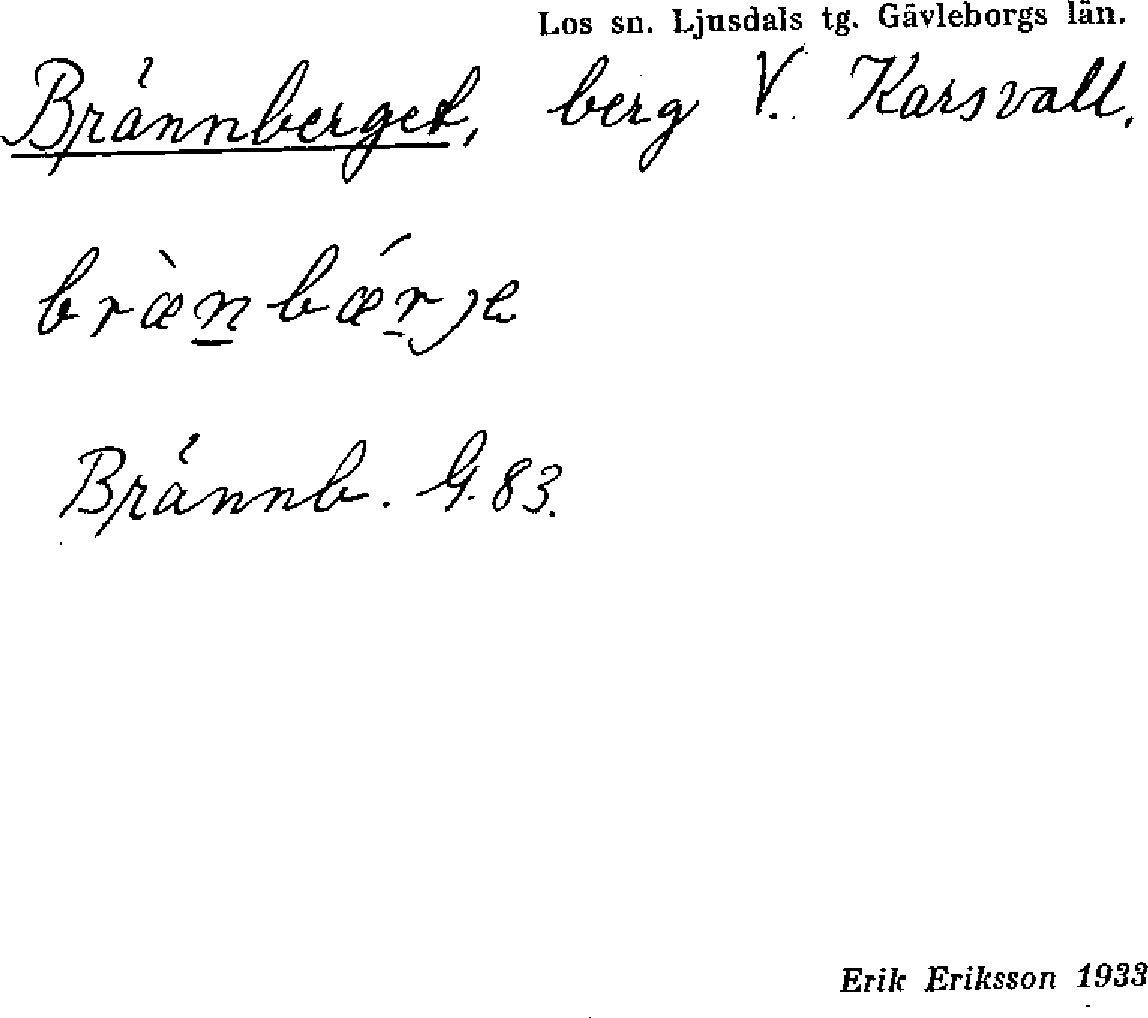 Los sn. Ljusdals tg. Gävleborgs län.
Brännberget, berg V. Karsvall.
bræ̀n̲bǽr̲je
Brännb. G. 83.
Erik Eriksson 1933